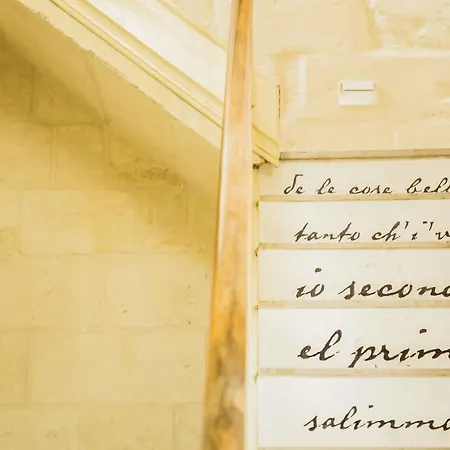 de le cose bel
tanto ch'i' v
io secon
el prim
salimm